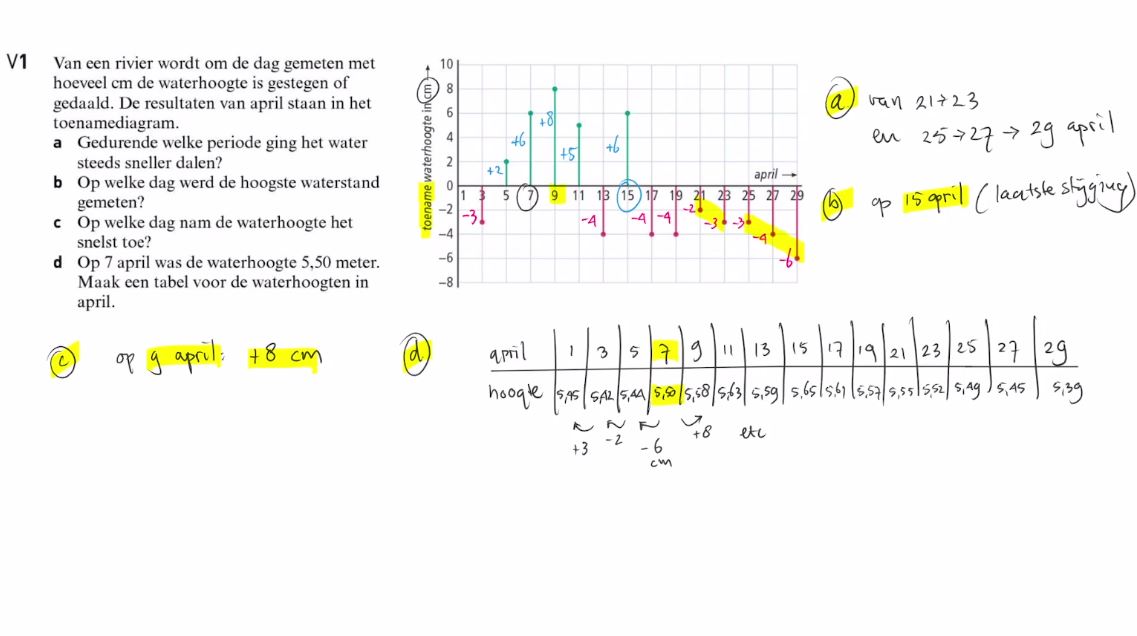 V1 Van een rivier wordt om de dag gemeten met
hoeveel cm de waterhoogte is gestegen of
gedaald. De resultaten van april staan in het
toenamediagram.
a Gedurende welke periode ging het water
steeds sneller dalen?
b Op welke dag werd de hoogste waterstand
gemeten?
c Op welke dag nam de waterhoogte het
snelst toe?
d Op 7 april was de waterhoogte 5,50 meter.
Maak een tabel voor de waterhoogten in
april.
toename waterhoogte in cm
10
8
6
4
2
0
-2
-4
-6
-8
april
1 3 5 7 9 11 13 15 17 19 21 23 25 27 29
-3 +2 +6 +8 +5 -4 +6 -4 -4 -2 -3 -3 -4 -6
a van 21→23
en 25→27→29 april
b op 15 april (laatste stijging)
c op 9 april: +8 cm
d
april 1 3 5 7 9 11 13 15 17 19 21 23 25 27 29
hoogte 5,45 5,42 5,44 5,50 5,58 5,63 5,59 5,65 5,61 5,57 5,55 5,52 5,49 5,45 5,39
+3 -2 -6 +8 etc
cm